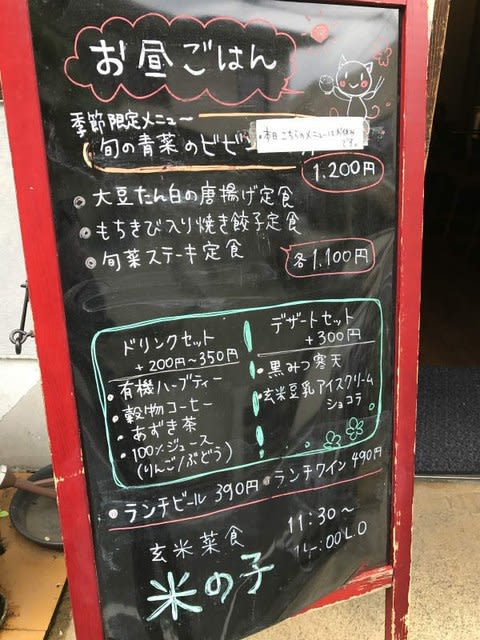 お昼ごはん
季節限定メニュー
旬の青菜のビビ
本日こちらのメニューはお休み
です。
1,200円
大豆たん白の唐揚げ定食
もちきび入り焼き餃子定食
旬菜ステーキ定食
各1,100円
ドリンクセット
+200円〜350円
・有機ハーブティー
・穀物コーヒー
・あずき茶
・100%ジュース
(りんご/ぶどう)
デザートセット
+300円
・黒みつ寒天
・玄米豆乳アイスクリーム
ショコラ
・ランチビール 390円
・ランチワイン 490円
玄米菜食
米の子
11:30〜
14:00 L.O